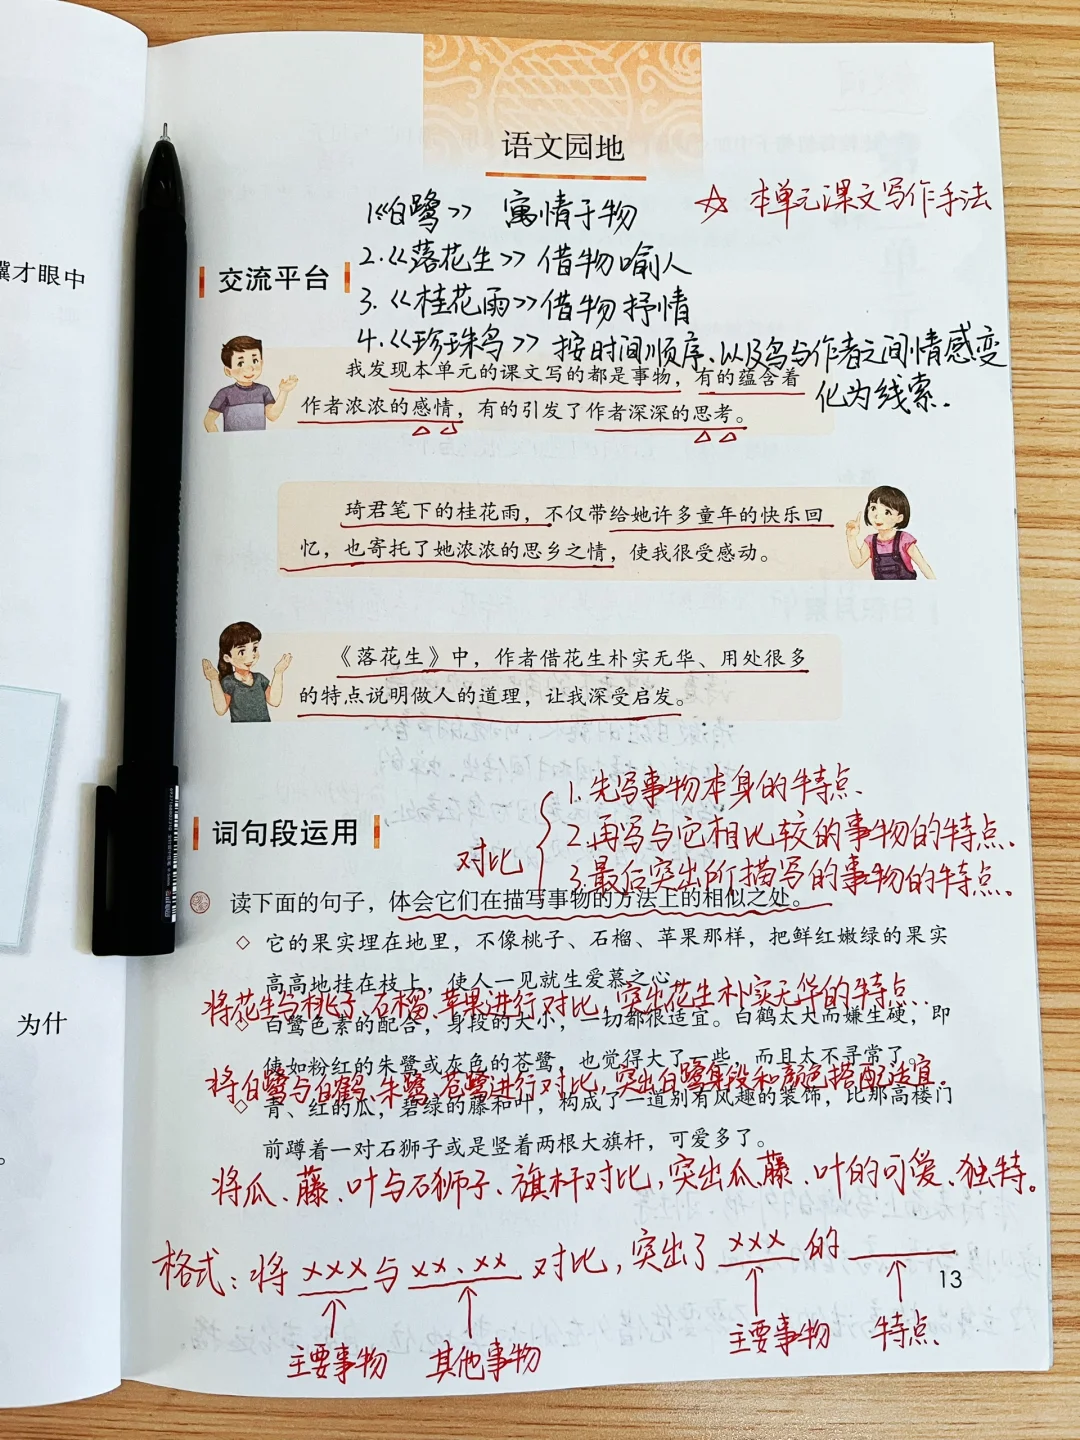 语文园地
1.《白鹭》 寓情于物
☆ 本单元课文写作手法
2.《落花生》借物喻人
交流平台
3.《桂花雨》借物抒情
4.《珍珠鸟》按时间顺序、以及鸟与作者之间情感变
化为线索.
我发现本单元的课文写的都是事物，有的蕴含着
作者浓浓的感情，有的引发了作者深深的思考。
琦君笔下的桂花雨，不仅带给她许多童年的快乐回
忆，也寄托了她浓浓的思乡之情，使我很受感动。
《落花生》中，作者借花生朴实无华、用处很多
的特点说明做人的道理，让我深受启发。
1.先写事物本身的特点.
词句段运用
对比
2.再写与它相比较的事物的特点.
3.最后突出所描写的事物的特点.
读下面的句子，体会它们在描写事物的方法上的相似之处。
◇ 它的果实埋在地里，不像桃子、石榴、苹果那样，把鲜红嫩绿的果实
高高地挂在枝上，使人一见就生爱慕之心。
将花生与桃子、石榴、苹果进行对比，突出花生朴实无华的特点.
◇ 白鹭色素的配合，身段的大小，一切都很适宜。白鹤太大而嫌生硬，即
使如粉红的朱鹭或灰色的苍鹭，也觉得大了一些，而且太不寻常了。
将白鹭与白鹤、朱鹭、苍鹭进行对比，突出白鹭身段和颜色搭配适宜.
◇ 青、红的瓜，碧绿的藤和叶，构成了一道别有风趣的装饰，比那高楼门
前蹲着一对石狮子或是竖着两根大旗杆，可爱多了。
将瓜、藤、叶与石狮子、旗杆对比，突出瓜、藤、叶的可爱、独特。
格式：将 xxx 与 xx、xx 对比，突出了 xxx 的
13
主要事物 其他事物 主要事物 特点.
骥才眼中
为什
。